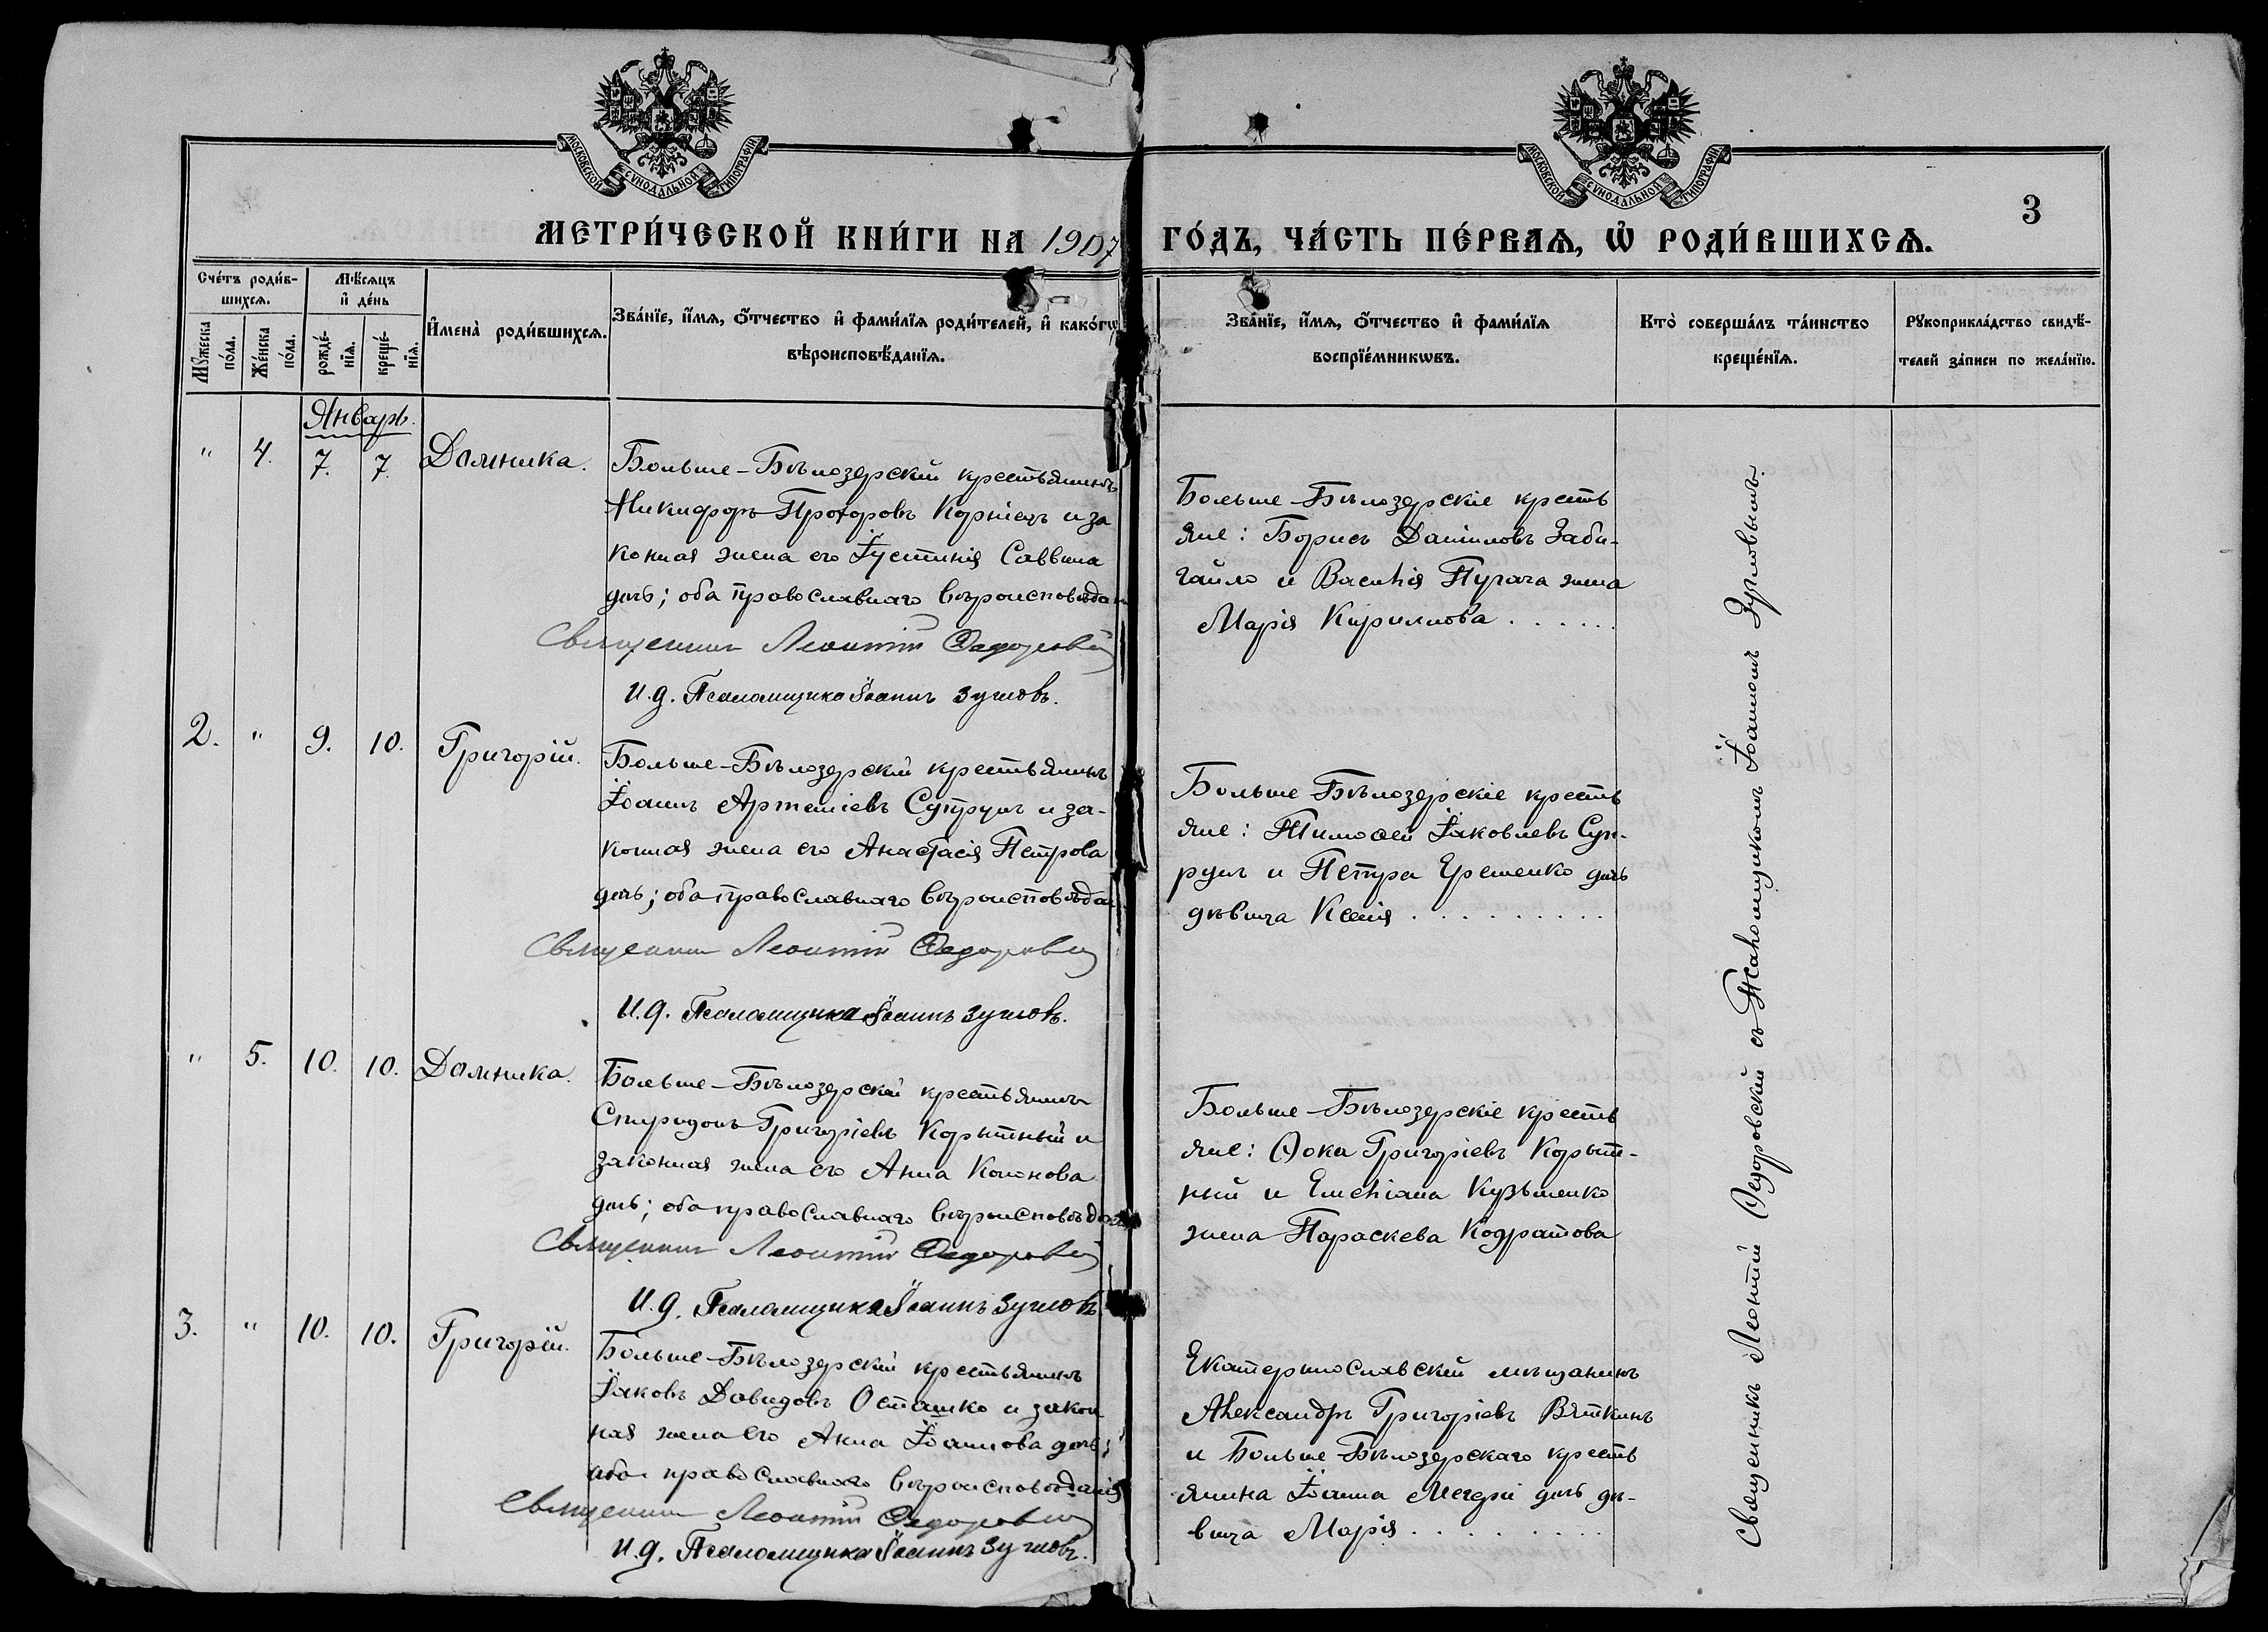 МОСКОВСКОЙ СѴНОДАЛЬНОЙ ТИПОГРАФІИ
МОСКОВСКОЙ СѴНОДАЛЬНОЙ ТИПОГРАФІИ
3
МЕТРИ́ЧЕСКОЙ КНИ́ГИ НА 1907 ГО́ДЪ, ЧА́СТЬ ПЕ́РВАѦ, Ѡ҆ РОДИ́ВШИХСѦ.
Сче́тъ роди́в-
шихсѧ.
Мѣ́сѧцъ
и҆ де́нь
Мꙋ́жеска
по́ла.
Же́нска
по́ла.
рожде́-
нїѧ.
креще́-
нїѧ.
И҆мена̀ роди́вшихсѧ.
Зва́нїе, и҆́мѧ, ѻ҆́тчество и҆ фами́лїѧ роди́телей, и҆ како́гѡ
вѣроисповѣ́данїѧ.
Зва́нїе, и҆́мѧ, ѻ҆́тчество и҆ фами́лїѧ
воспрїе́мникѡвъ.
Кто̀ соверша́лъ та́инство
креще́нїѧ.
Рꙋкоприкла́дство свидѣ́-
телей за́писи по жела́нїю.
Январь.
" 4. 7. 7. Домника.
Больше-Бѣлозерскій крестьянинъ
Никифоръ Прохоровъ Корніецъ и за
конная жена его Іустинія Саввина
дочь; оба православнаго вѣроисповѣдан
Священникъ Леонтій Федоровскій
И.д. Псаломщика Іоаннъ Зугловъ.
Больше-Бѣлозерскіе кресть
яне: Борисъ Даніиловъ Заби-
гайло и Василія Пугача жена
Марія Кириллова . . . . . .
2. " 9. 10. Григорій.
Больше-Бѣлозерскій крестьянинъ
Іоаннъ Артеміевъ Супрунъ и за-
конная жена его Анастасія Петрова
дочь; оба православнаго вѣроисповѣдан
Священникъ Леонтій Федоровскій
И.д. Псаломщика Іоаннъ Зугловъ.
Больше Бѣлозерскіе кресть
яне: Тимоѳей Іаковлевъ Суп-
рунъ и Петра Еременко дочь
дѣвица Ксенія . . . . . . . . .
" 5. 10. 10. Домника.
Больше-Бѣлозерскій крестьянинъ
Спиридонъ Григоріевъ Корытный и
законная жена его Анна Кононова
дочь; оба православнаго вѣроисповѣдан
Священникъ Леонтій Федоровскій
И.д. Псаломщика Іоаннъ Зугловъ.
Больше-Бѣлозерскіе кресть
яне: Ѳока Григоріевъ Корыт-
ный и Емеліана Кузьменко
жена Параскева Кодратова
3. " 10. 10. Григорій.
Больше-Бѣлозерскій крестьянинъ
Іаковъ Давидовъ Осташко и закон
ная жена его Анна Іоаннова дочь;
оба православнаго вѣроисповѣданія
Священникъ Леонтій Федоровскій
И.д. Псаломщика Іоаннъ Зугловъ.
Екатеринославскій мѣщанинъ
Александръ Григоріевъ Вяткинъ
и Больше-Бѣлозерскаго кресть
янина Іоанна дочь дѣ-
вица Марія . . . . . . . . .
Священникъ Леонтій Ѳедоровскій съ Псаломщикомъ Іоанномъ Зугловымъ.